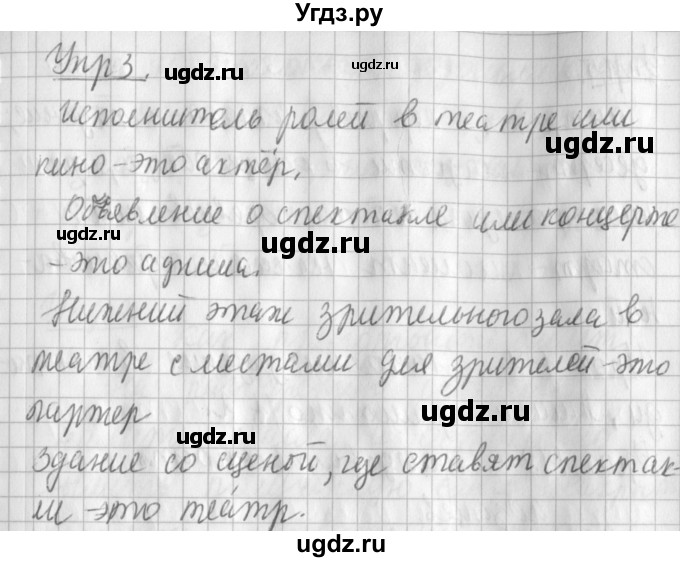 Угдз.ру
Упр 3. ugdz.ru ugdz.ru
Исполнитель ролей в театре или
ugdz.ru
кино - это актёр.
Объявление о спектакле или концерте
ugdz.ru ugdz.ru
- это афиша.
Нижний этаж зрительного зала в
ugdz.ru
театре с местами для зрителей - это
партер ugdz.ru
Здание со сценой, где ставят спектак-
ugdz.ru
ли - это теа́тр.
ugdz.ru